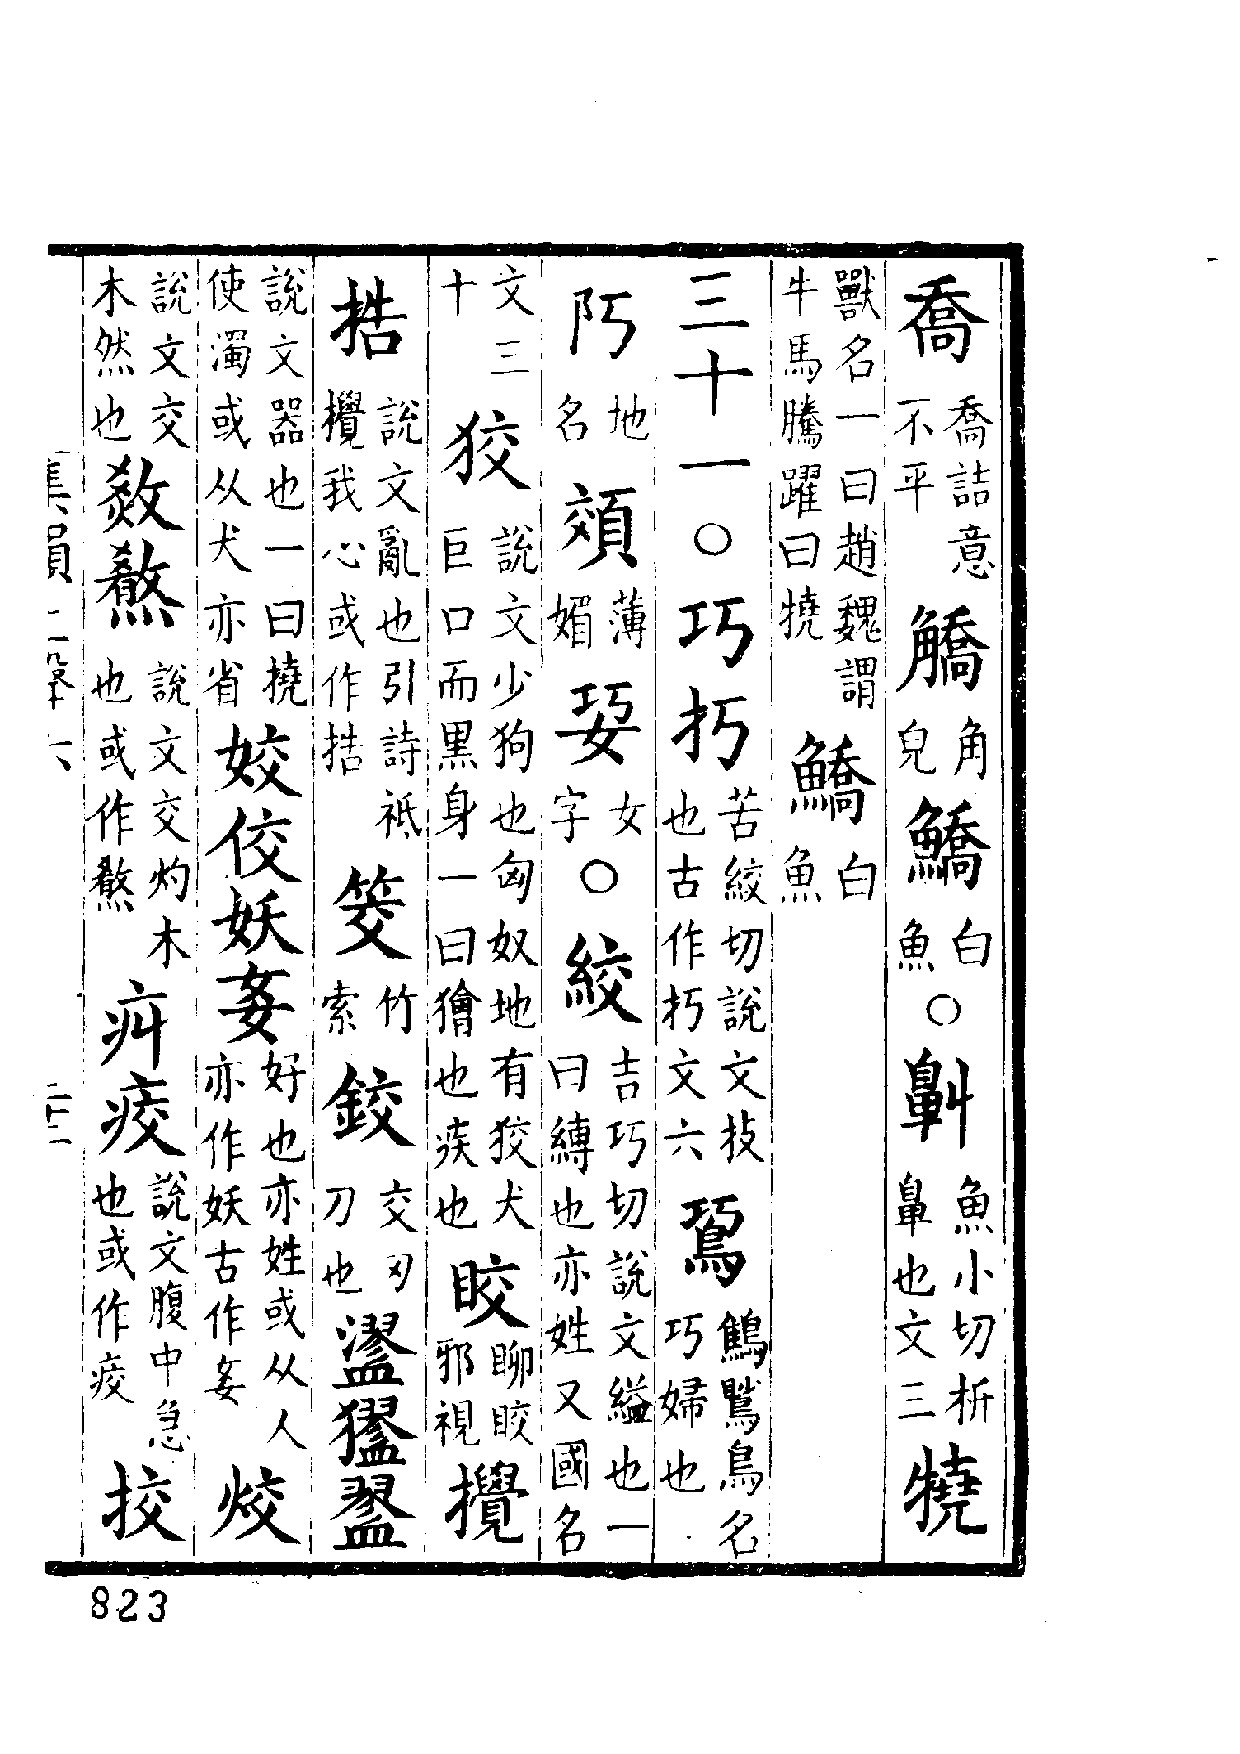 喬喬詰意不平觼角皃鱎白魚○䶐魚小切折鼻也文三犞
獸名一曰趙魏謂牛馬騰躍曰犞鱎白魚
三十一○巧㧃苦絞切說文技也古作㧃文六鴌鷦鷯鳥名巧婦也
阣地名頝薄媚㚽女字○絞吉巧切說文縊也一曰縛也亦姓又國名
文三十狡說文少狗也匈奴地有狡犬巨口而黑身一曰獪也疾也晈聊晈邪視攪
捁說文亂也引詩祗攪我心或作捁筊竹索鉸交刃刀也㿑獿
說文器也一曰撓使濁或从犬亦省姣佼妖㚣好也亦姓或从人亦作妖古作㚣烄
說文交木然也敥㷅說文交灼木也或作㷅疛㽱說文腹中急也或作㽱挍
集韻上聲六 二十二
823